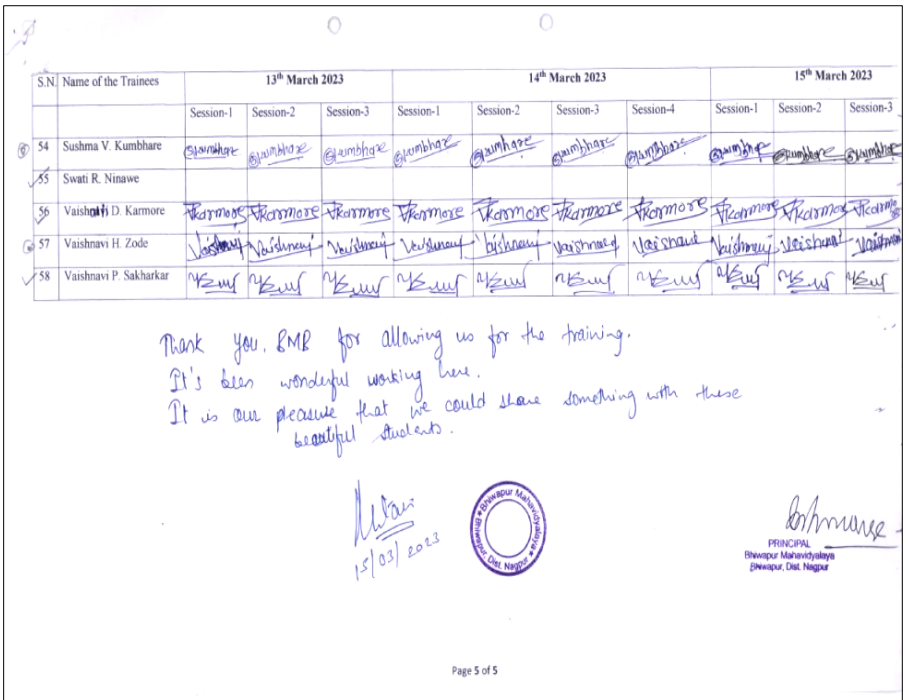 S.N. Name of the Trainees 13th March 2023 14th March 2023 15th March 2023
Session-1 Session-2 Session-3 Session-1 Session-2 Session-3 Session-4 Session-1 Session-2 Session-3
54 Sushma V. Kumbhare Skumbhare Skumbhare Skumbhare Skumbhare Skumbhare Skumbhare Skumbhare Skumbhare Skumbhare Skumbhare
55 Swati R. Ninawe
56 Vaishnavi D. Karmore Vkarmore Vkarmore Vkarmore Vkarmore Vkarmore Vkarmore Vkarmore Vkarmore Vkarmore Vkarmore
57 Vaishnavi H. Zode Vaishnavi Vaishnavi Vaishnavi Vaishnavi Vaishnavi Vaishnavi Vaishnavi Vaishnavi Vaishnavi Vaishnavi
58 Vaishnavi P. Sakharkar
Thank you, BMB for allowing us for the training.
It's been wonderful working here.
It is our pleasure that we could share something with these
beautiful students.
15/03/2023
Bhiwapur Mahavidyalaya
Bhiwapur, Dist. Nagpur
PRINCIPAL
Bhiwapur Mahavidyalaya
Bhiwapur, Dist. Nagpur
Page 5 of 5